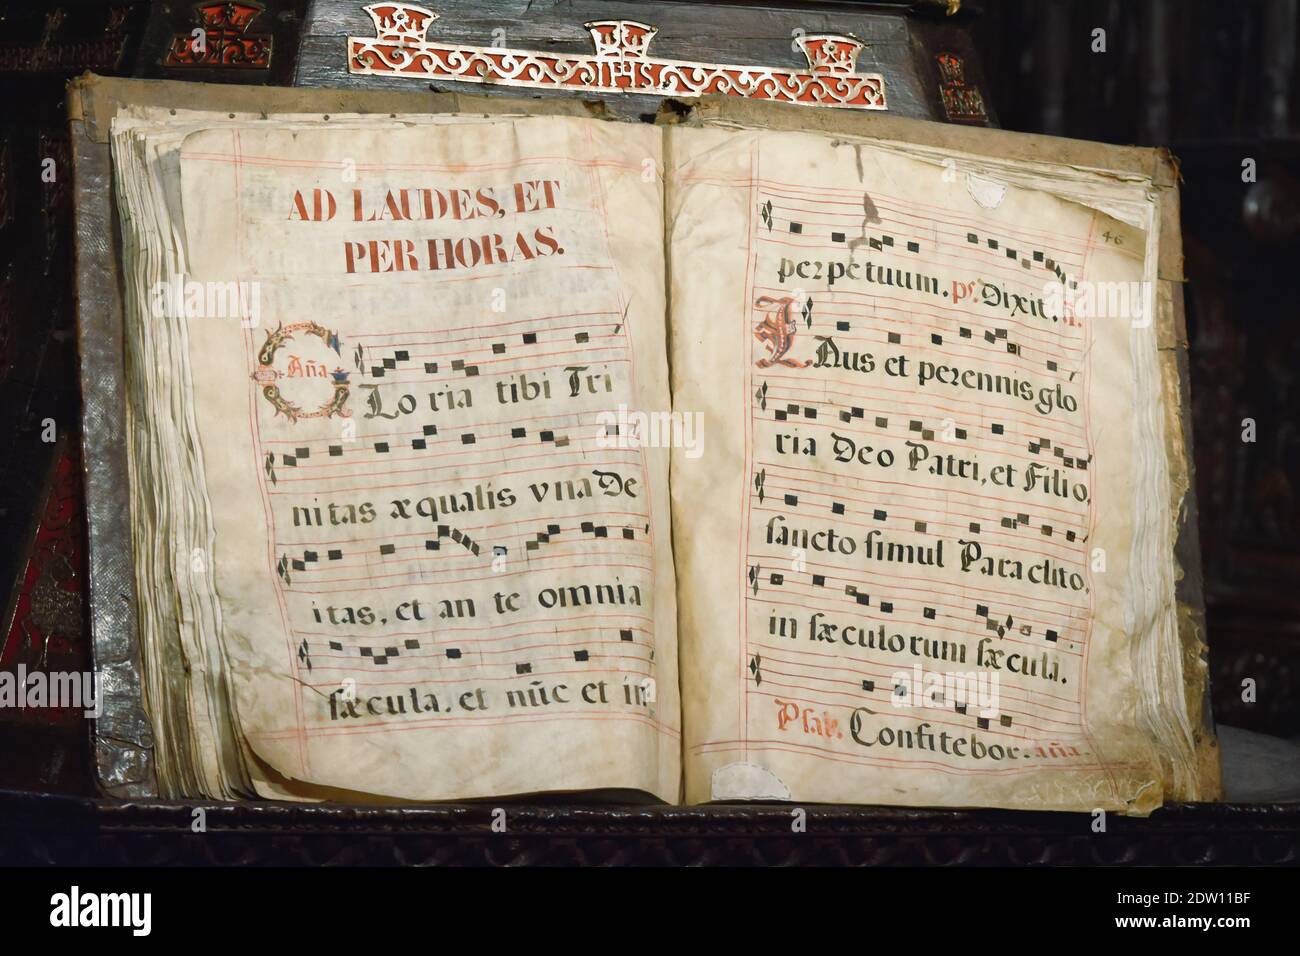 IHS
AD LAUDES, ET
PER HORAS.
Aña
GLoria tibi Tri
nitas æqualis vna De
itas, et an te omnia
ſæcula, et nũc et in
46
perpetuum. ps. Dixit. a̅.
LAus et perennis glo
ria Deo Patri, et Filio,
ſancto ſimul Paraclito,
in ſæculorum ſæcula.
Pſal. Confitebor. aña.
alamy
Image ID: 2DW11BF
www.alamy.com